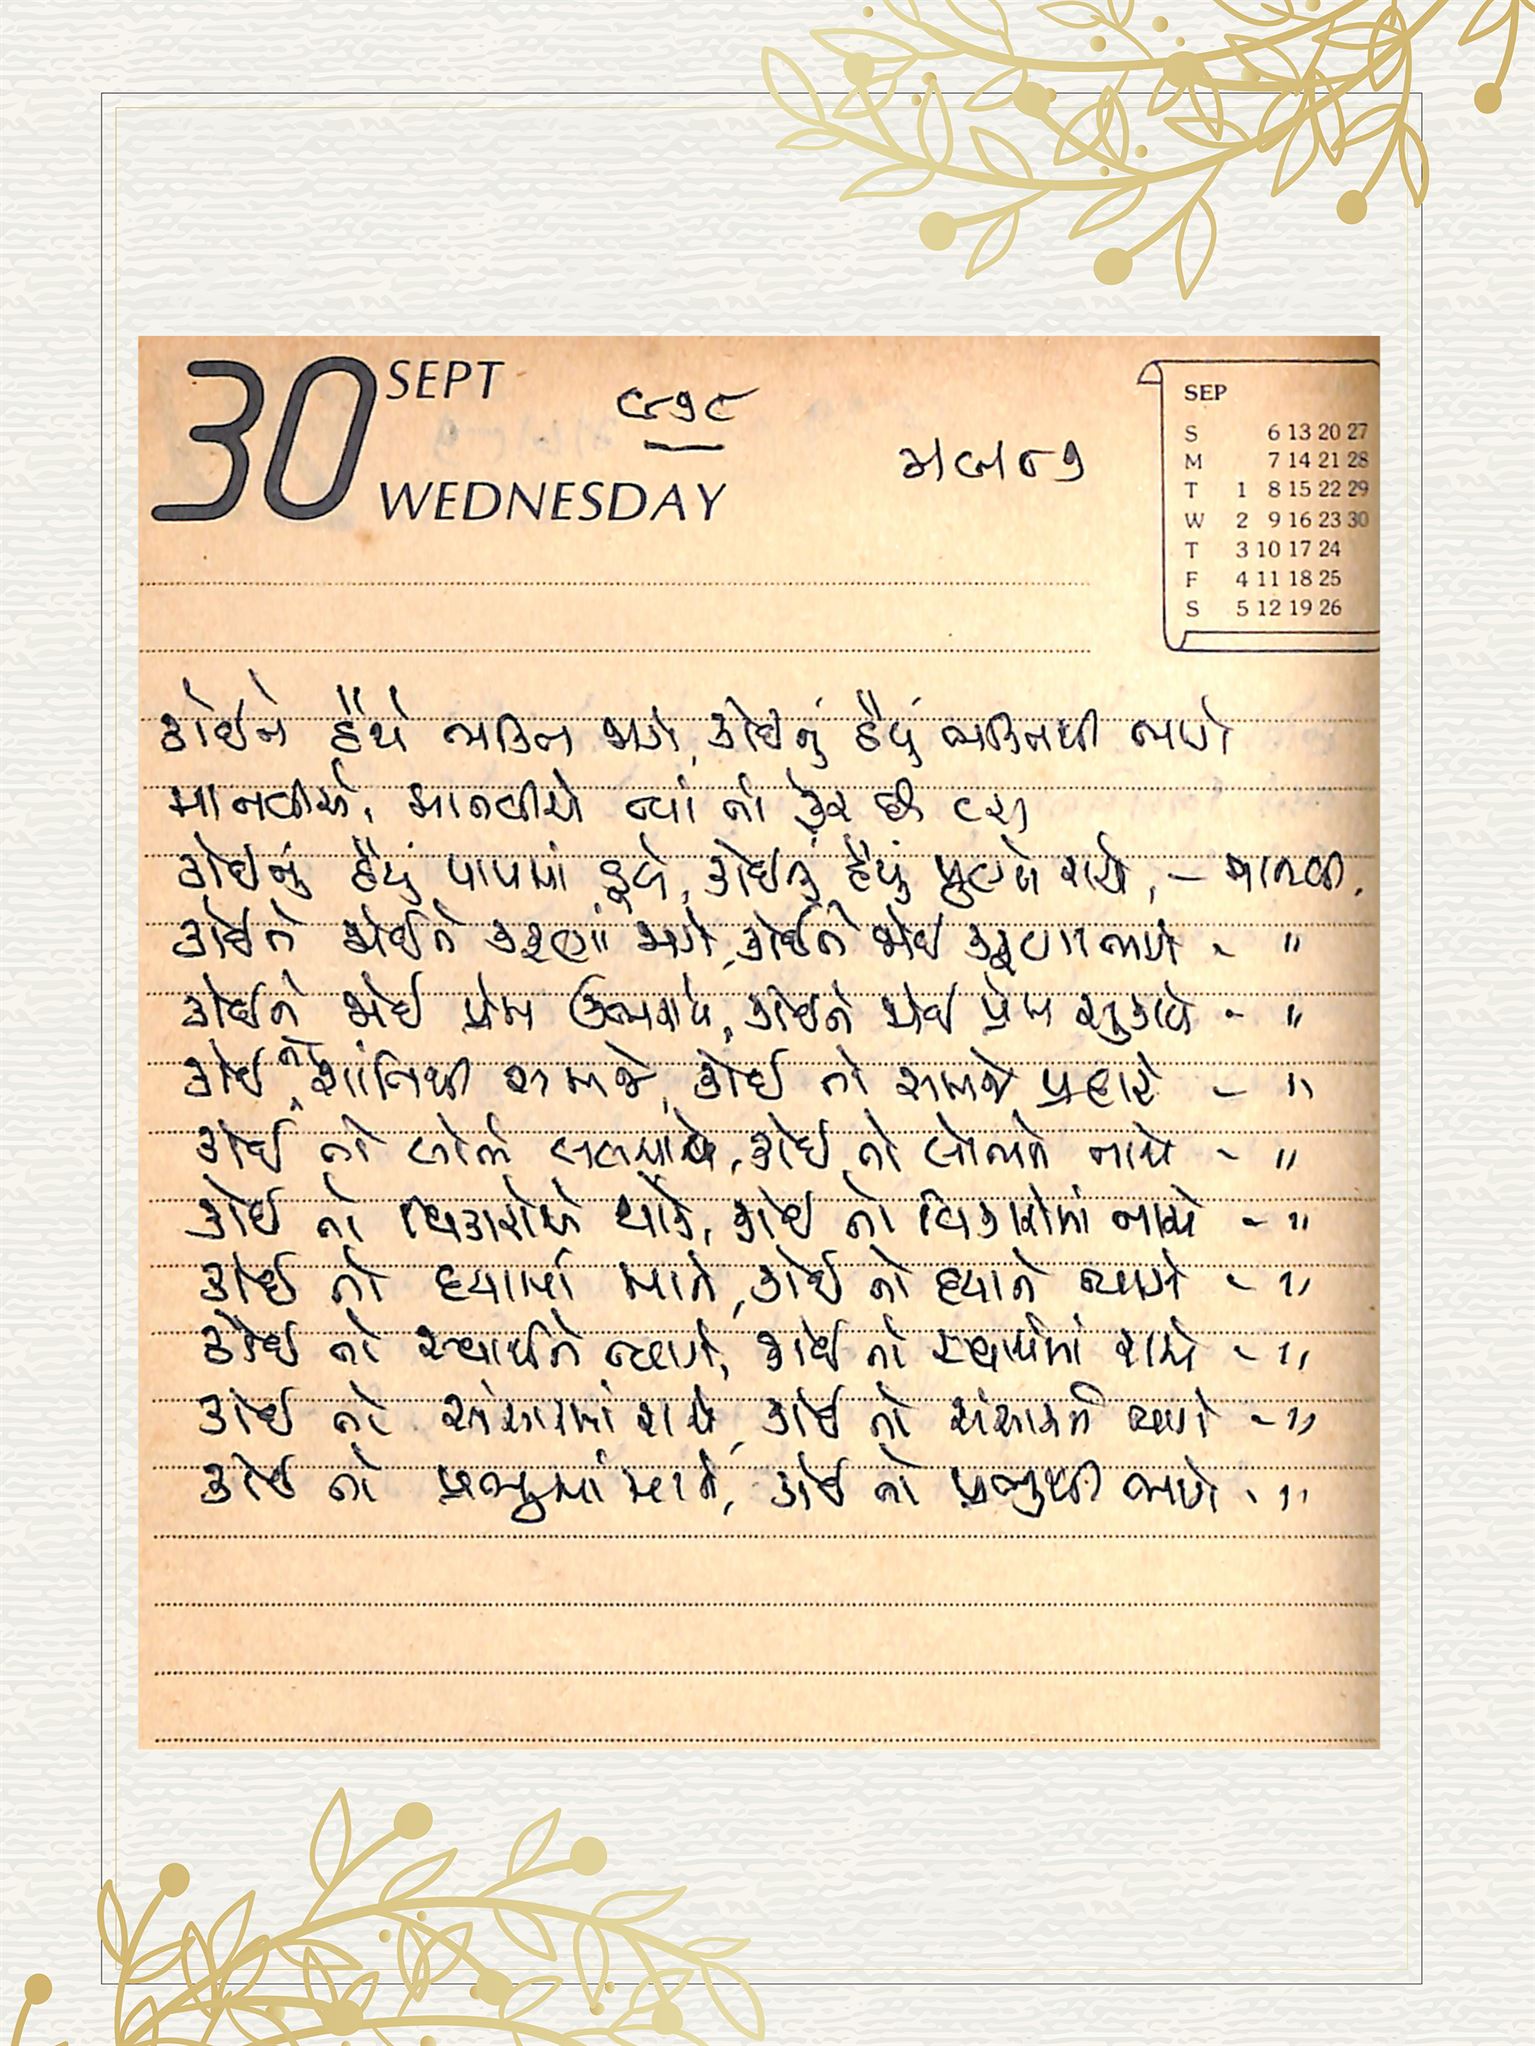 30 SEPT
WEDNESDAY
૯૧૮
SEP
S 6 13 20 27
M 7 14 21 28
T 1 8 15 22 29
W 2 9 16 23 30
T 3 10 17 24
F 4 11 18 25
S 5 12 19 26
કોઈને હૈયે ભક્તિ જાગે, કોઈનું હૈયું ભક્તિથી ભાગે
માનવીએ, માનવીએ ત્યાં તો ફેર છે
કોઈનું હૈયું પાપમાં ડૂબે, કોઈનું હૈયું પુણ્યે રાચે, - માનવી.
કોઈને જોઈને કરૂણા જાગે, કોઈને જોઈ કરૂણા ભાગે - "
કોઈને જોઈ પ્રેમ ઉભરાયે, કોઈને જોઈ પ્રેમ સુકાયે - "
કોઈ તો શાંતિથી સમજે, કોઈ તો સમજે પ્રહારે - "
કોઈ તો લોભે લલચાયે, કોઈ તો લોભને નાથે - "
કોઈ તો વિકારોએ થાકે, કોઈ તો વિકારોમાં નાચે - "
કોઈ તો દયામાં માને, કોઈ તો દયાને ત્યાગે - "
કોઈ તો સ્વાર્થને ત્યાગે, કોઈ તો સ્વાર્થમાં રાચે - "
કોઈ તો સંસારમાં રાચે, કોઈ તો સંસારને ત્યાગે - "
કોઈ તો પ્રભુમાં માને, કોઈ તો પ્રભુથી ભાગે - "